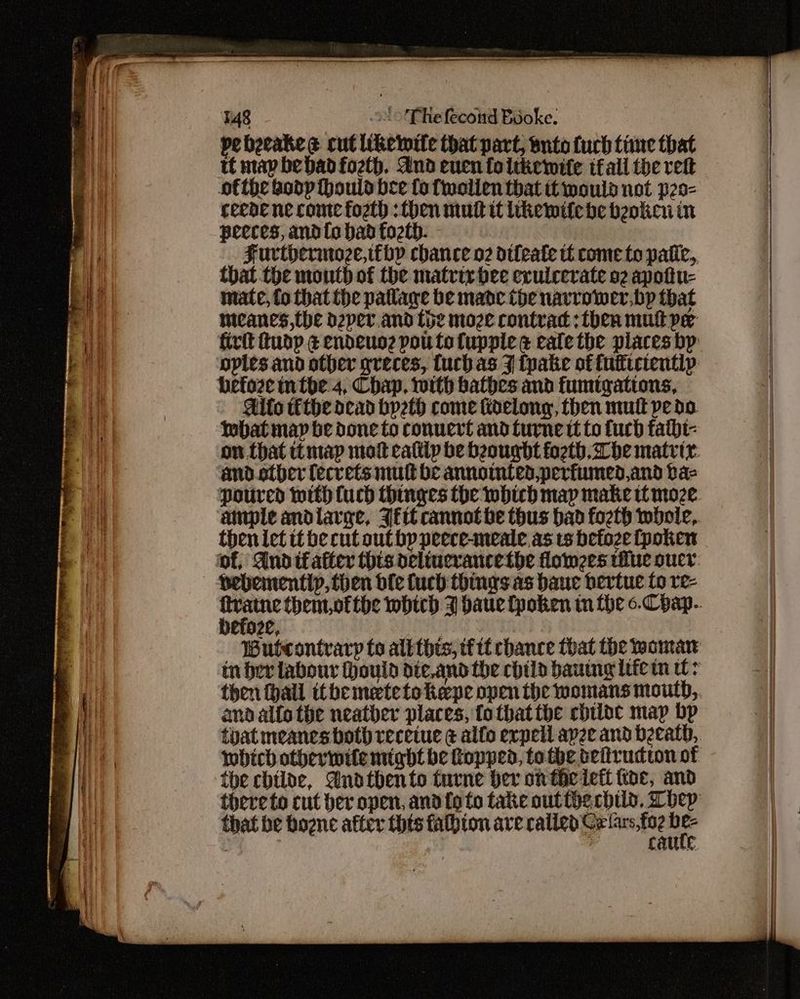 148 The second Booke.
ye breake & cut likewise that part, vnto such time that
it may be had forth. And euen so likewise if all the rest
of the body should bee so swollen that it would not pro-
ceede ne come forth : then must it likewise be broken in
peeces, and so had forth.
Furthermore, if by chance or disease it come to passe,
that the mouth of the matrix bee exulcerate or apostu-
mate, so that the passage be made the narrower, by that
meanes, the dryer and the more contract : then must yee
first study & endeuor you to supple & ease the places by
oyles and other greces, such as I spake of sufficiently
before in the 4. Chap. with bathes and fumigations.
Also if the dead byrth come sidelong, then must ye do
what may be done to conuert and turne it to such fashi-
on that it may most easily be brought forth. The matrix
and other secrets must be annointed, perfumed, and va-
poured with such thinges the which may make it more
ample and large. If it cannot be thus had forth whole,
then let it be cut out by peece-meale as is before spoken
of. And if after this deliuerance the flowres issue ouer
vehemently, then vse such things as haue vertue to re-
straine them, of the which I haue spoken in the 6. Chap.
before.
But contrary to all this, if it chance that the woman
in her labour should die, and the child hauing life in it :
then shall it be meete to keepe open the womans mouth,
and also the neather places, so that the childe may by
that meanes both receiue & also expell ayre and breath,
which otherwise might be stopped, to the destruction of
the childe. And then to turne her on the left side, and
there to cut her open, and so to take out the child. They
that be borne after this fashion are called Cæsars, for be-
cause